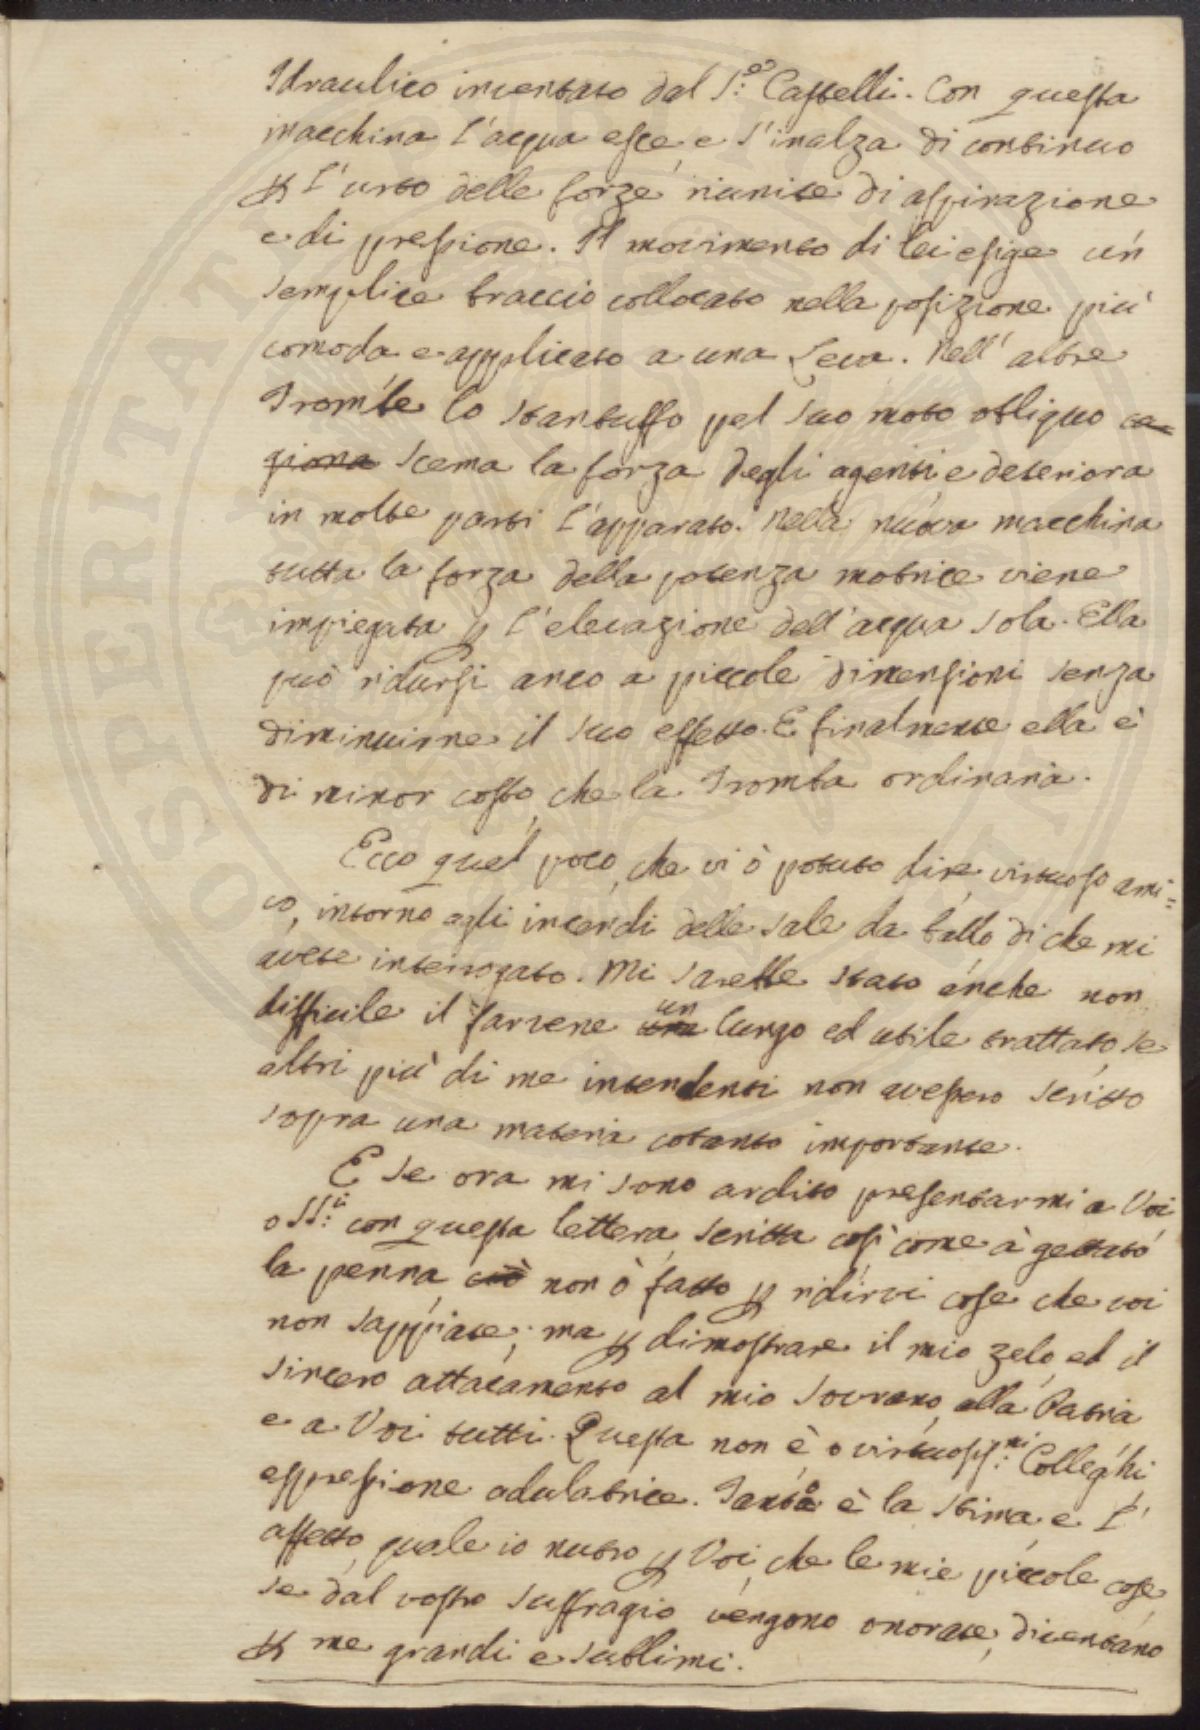 Idraulico inventato dal S:or Castelli. Con questa
macchina l'acqua esce, e s'inalza di continuo
p l'urto delle forze riunite di aspirazione
e di pressione. Il movimento di lei esige un
semplice braccio collocato nella posizione più
comoda e applicato a una Leva. Nell'altre
Trombe lo stantuffo pel suo moto obliquo ca=
giona scema la forza degli agenti, e deteriora
in molte parti l'apparato. Nella nuova macchina
tutta la forza della potenza motrice viene
impiegata p l'elevazione dell'acqua sola. Ella
può ridursi anco a piccole dimensioni senza
diminuirne il suo effetto. E finalmente ella è
di minor costo, che la Tromba ordinaria.
Ecco quel poco, che vi ò potuto dire, virtuoso ami=
co, intorno agli incendi delle sale da ballo, di che mi
avete interrogato. Mi sarebbe stato anche non
difficile il farvene un lungo ed utile trattato, se
altri più di me intendenti non avessero scritto
sopra una materia cotanto importante.
E se ora mi sono ardito presentarmi a Voi
o SS:ri con questa lettera, scritta così come à gettato
la penna, ciò non ò fatto p ridirvi cose che voi
non sappiate; ma p dimostrare il mio zelo, ed il
sincero attacamento al mio Sovrano, alla Patria
e a Voi tutti. Questa non è, o virtuosiss:mi Colleghi
espressione adulatrice. Tanta è la stima e l'
affetto, quale io nutro p Voi, che le mie piccole cose,
se dal vostro suffragio vengono onorate, diventano
p me grandi e sublimi.